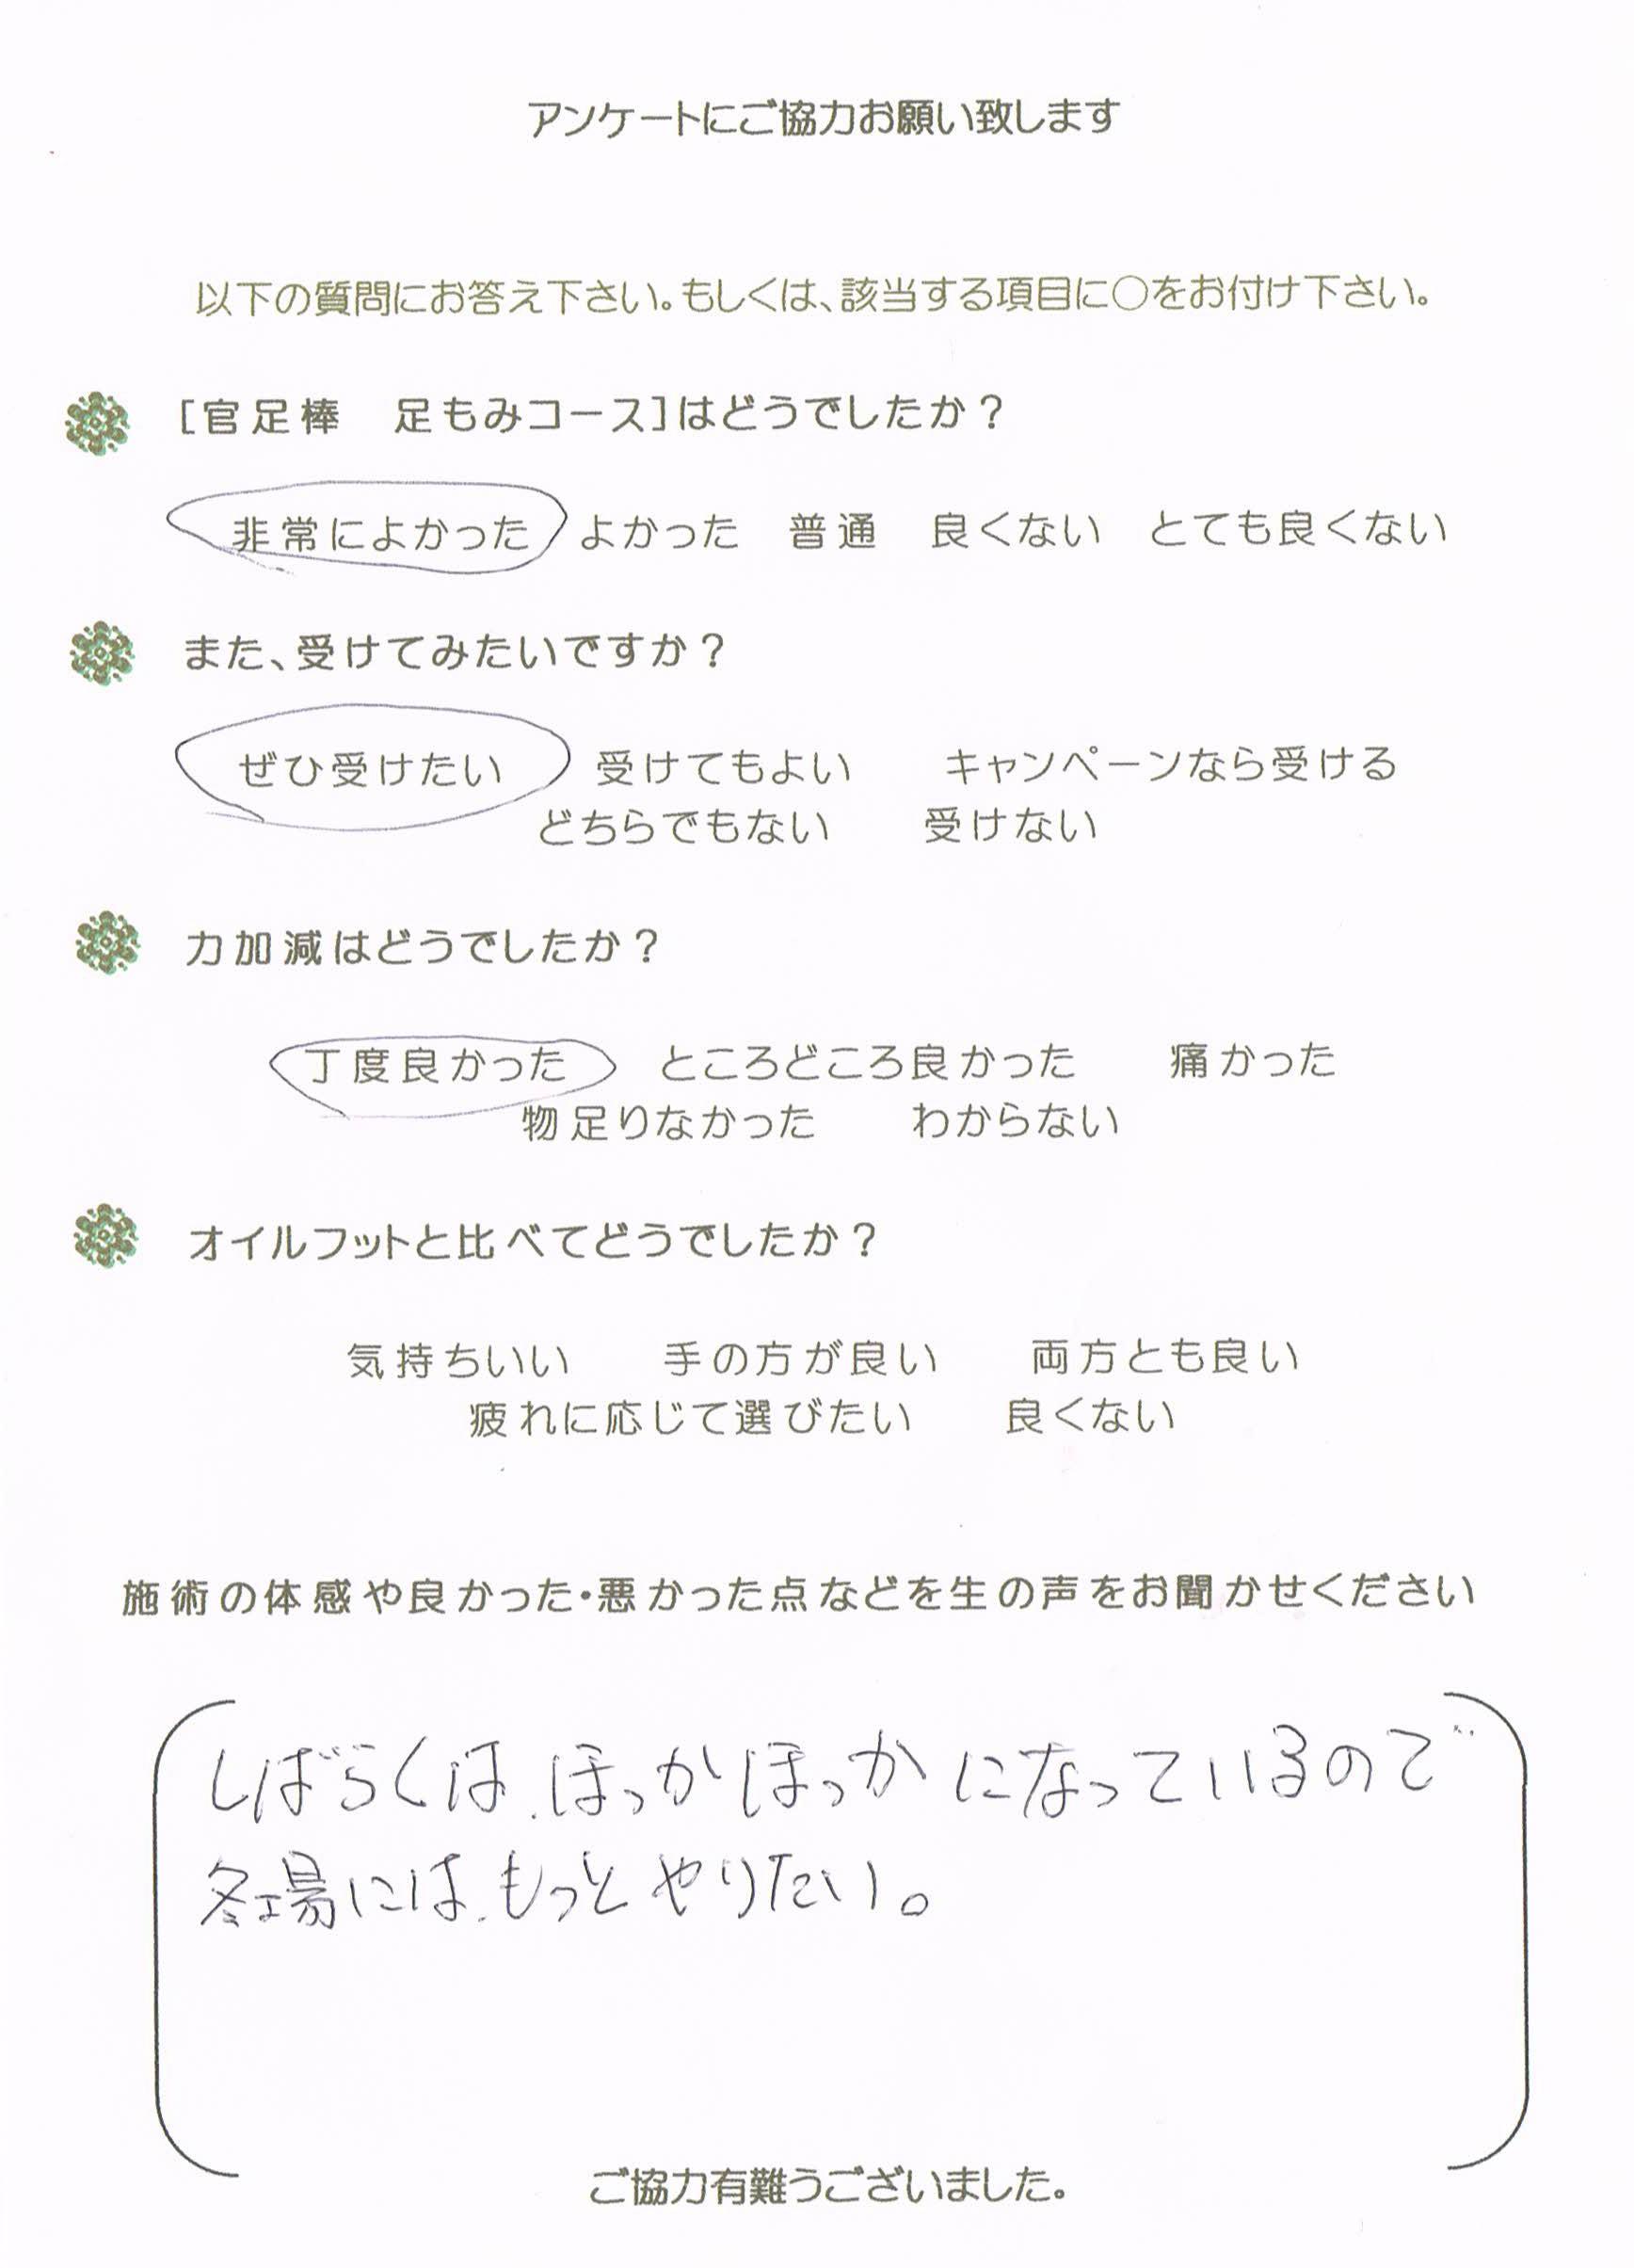 アンケートにご協力お願い致します
以下の質問にお答え下さい。もしくは、該当する項目に○をお付け下さい。
[官足棒　足もみコース]はどうでしたか？
非常によかった　よかった　普通　良くない　とても良くない
また、受けてみたいですか？
ぜひ受けたい　受けてもよい　キャンペーンなら受ける
どちらでもない　受けない
力加減はどうでしたか？
丁度良かった　ところどころ良かった　痛かった
物足りなかった　わからない
オイルフットと比べてどうでしたか？
気持ちいい　手の方が良い　両方とも良い
疲れに応じて選びたい　良くない
施術の体感や良かった・悪かった点などを生の声をお聞かせください
しばらくは、ほっかほっかになっているので
冬場には、もっとやりたい。
ご協力有難うございました。